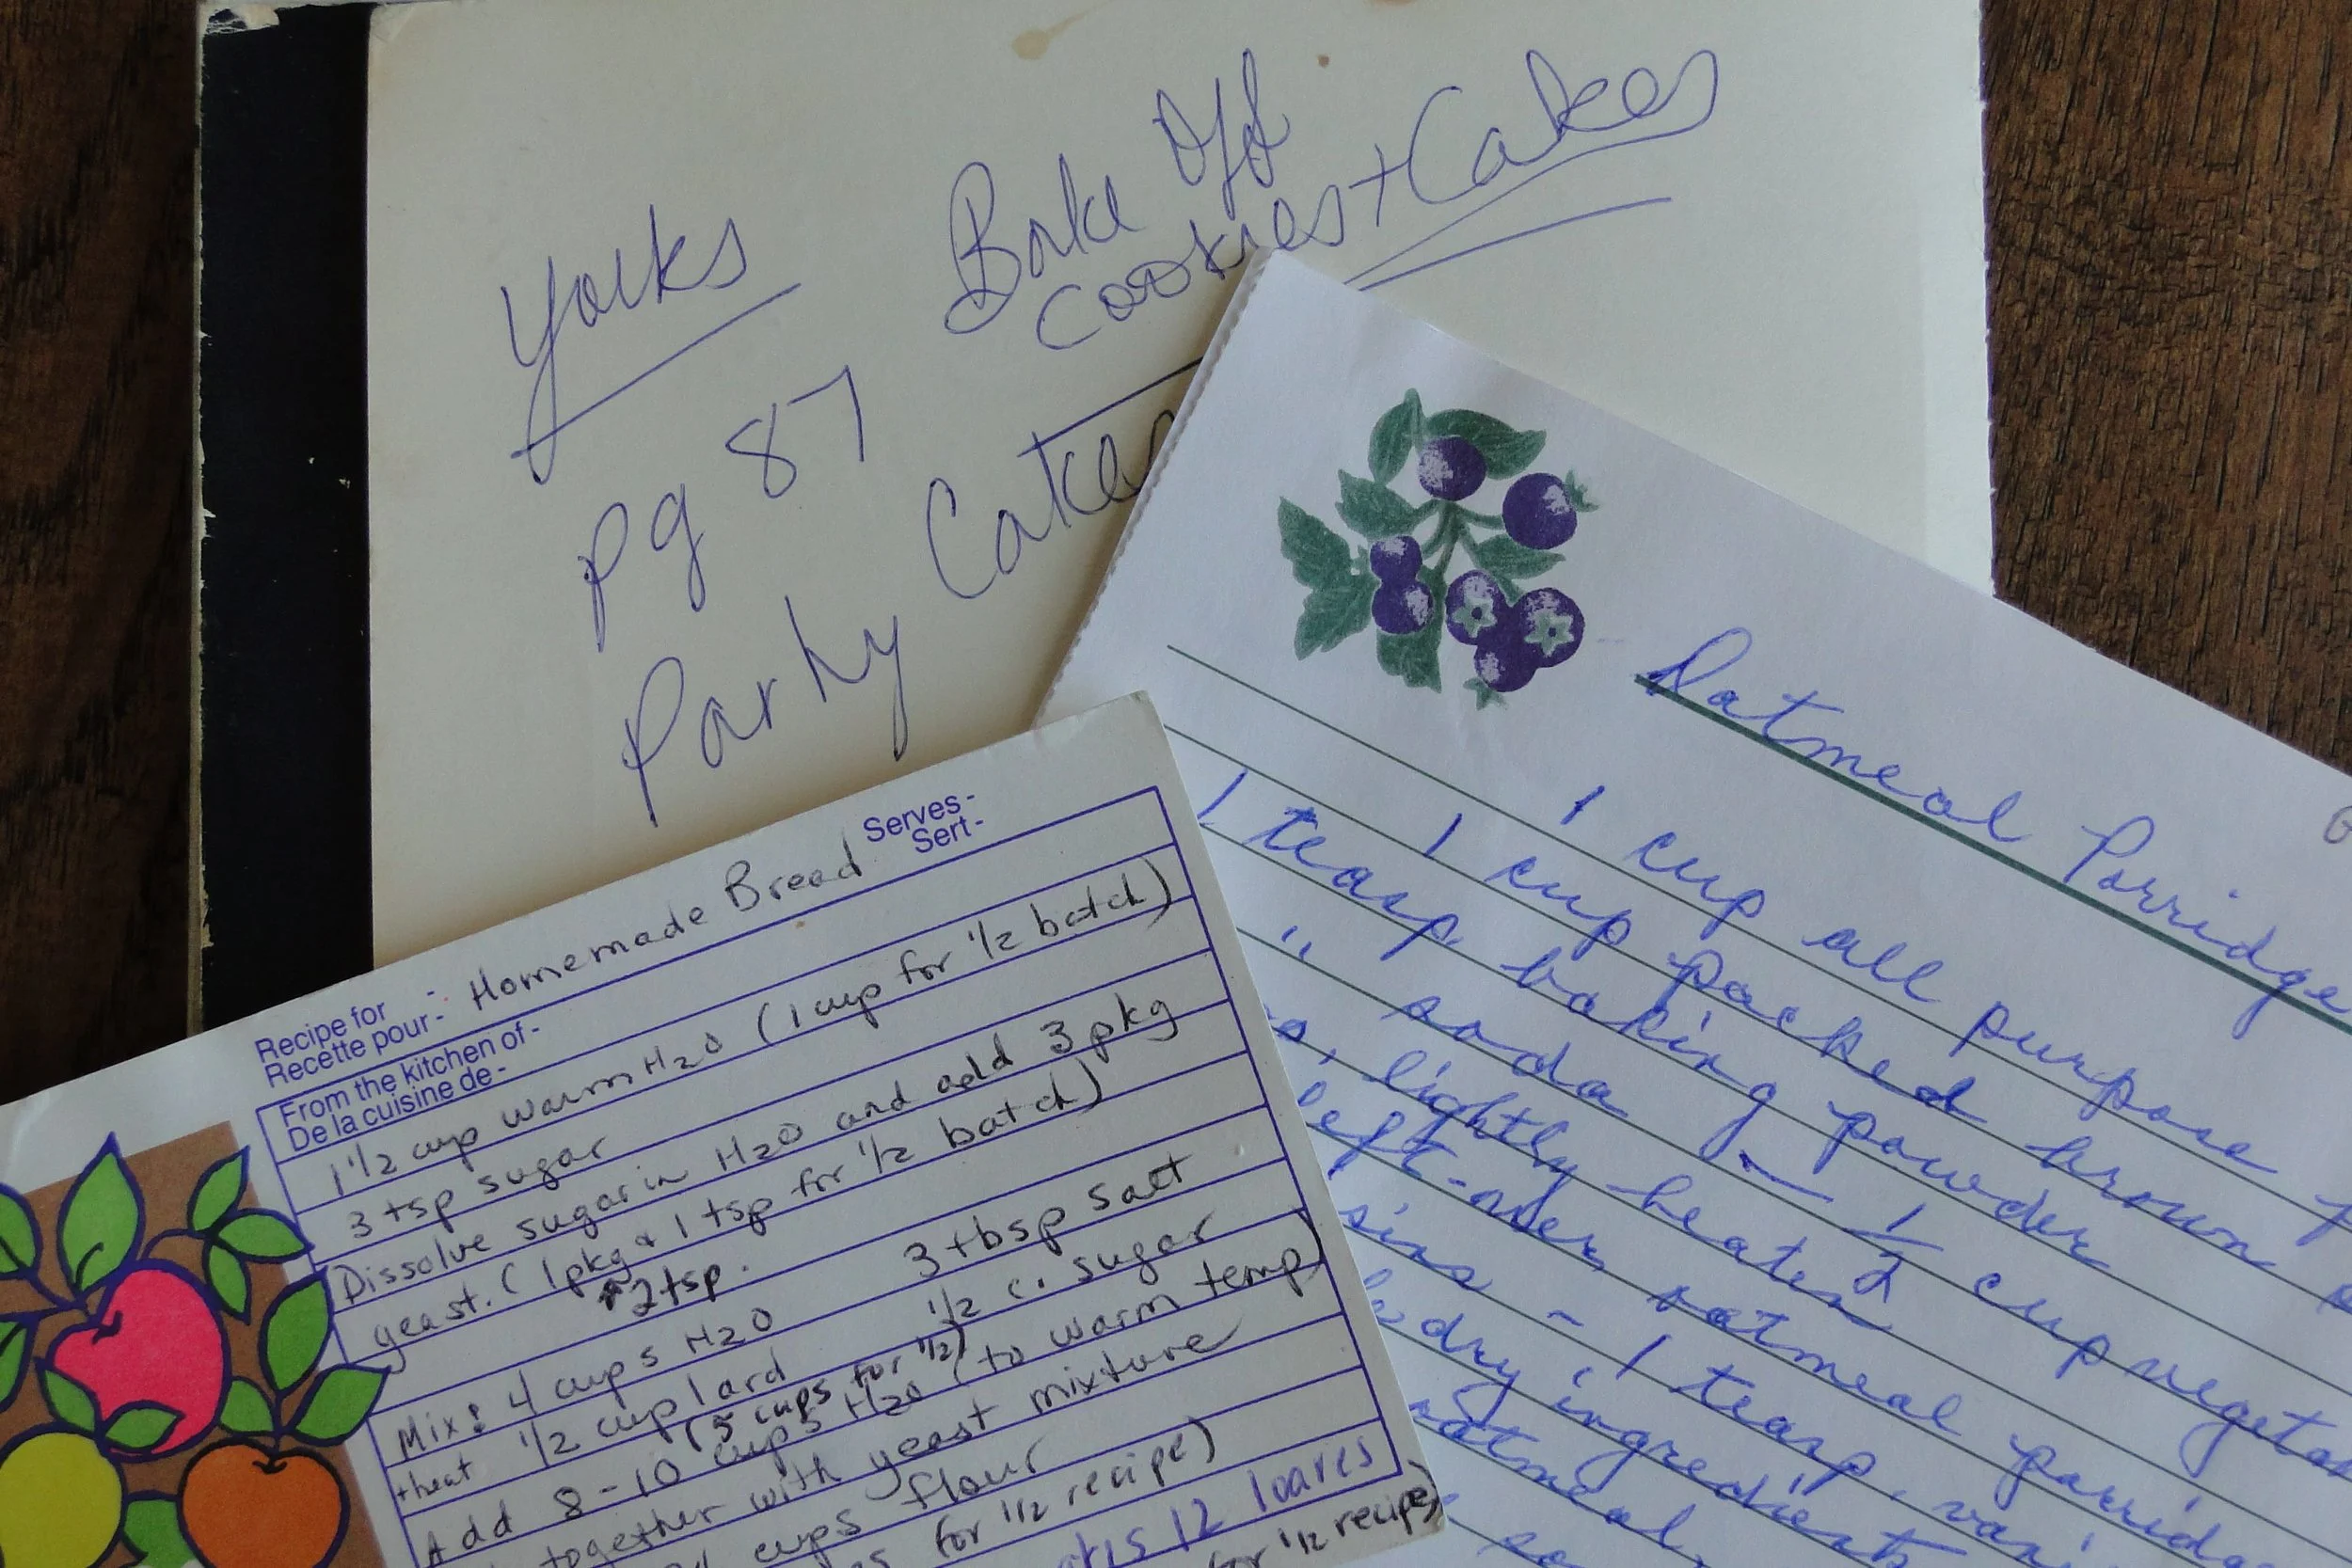 Yorks
Bake Off
Cookies + Cakes
pg 87
Cakes
Party
Serves-
Sert-
Recipe for - Homemade Bread
Recette pour -
From the kitchen of -
De la cuisine de -
1 1/2 cup warm H2O (1 cup for 1/2 batch)
3 tsp sugar
Dissolve sugar in H2O and add 3 pkg
yeast. (1 pkg & 1 tsp for 1/2 batch)
2 tsp.
Mix: 4 cups H2O 3 tbsp salt
+ heat 1/2 cup lard 1/2 c. sugar
(5 cups for 1/2)
Add 8-10 cups H2O (to warm temp)
together with yeast mixture
cups flour
for 1/2 recipe)
12 loaves
for 1/2 recipe)
Oatmeal Porridge
1 cup all purpose
1 cup packed brown
1 teasp baking powder
" soda - 1/2 cup vegeta
lightly beaten
left-over oatmeal porridge
1 teasp. vani
dry ingredients
oatmeal,